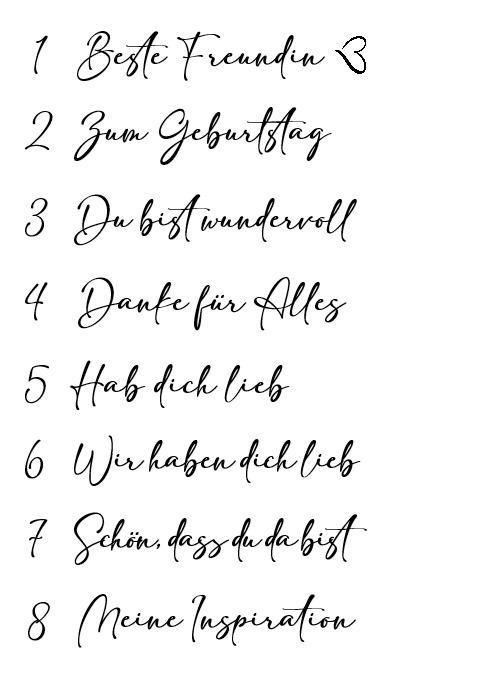 1 Beste Freundin ♡
2 Zum Geburtstag
3 Du bist wundervoll
4 Danke für Alles
5 Hab dich lieb
6 Wir haben dich lieb
7 Schön, dass du da bist
8 Meine Inspiration